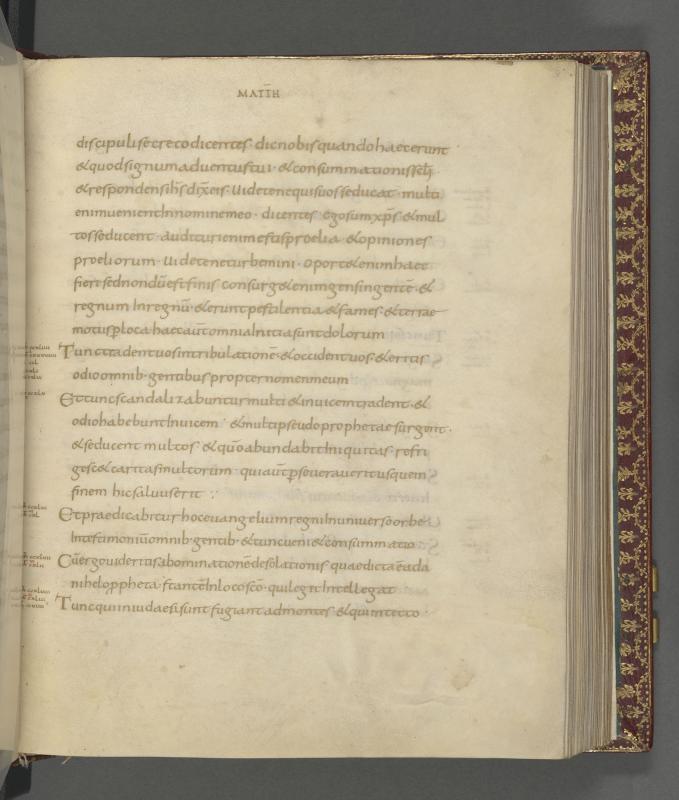 MATTH
discipuli secreto dicentes· dic nobis quando haec erunt·
& quod signum adventus tui· & consummationis sęli
& respondens ihs dixeis· Uidete nequis uos seducat· multi
enim uenient In nomine meo· dicentes ego sum xps & mul
tos seducent· audituri enim estis proelia & opiniones
proeliorum· Uidete ne turbemini· oport& enim haec
fieri sed nondū est finis consurg& enim gens in gentē· &
regnum In regnū· & erunt pestilentia & fames· & terrae
motus p loca· haec aūt omnia Initia sunt dolorum
Tunc tradent uos in tribulationē· & occident uos· & eritis
odio omnib· gentibus propter nomen meum
Et tunc scandalizabuntur multi & inuicem tradent· &
odio habebunt Inuicem· & multi pseudoprophetae surgent·
& seducent multos & qūo abundabit Iniquitas· refri
gesc& caritas multorum· qui aūt pseuerauerit usque in
finem hic saluus erit
Et praedicabitur hoc euangelium regni In uniuerso orbe
In testimoniū omnib· gentib· & tunc ueni& consummatio
Cū ergo uideritis abominationē desolationis quae dicta ē ada
nihelo ppheta· stantē In loco scō· qui legit Intellegat
Tunc qui in iudaea sunt fugiant ad montes & qui in tecto·